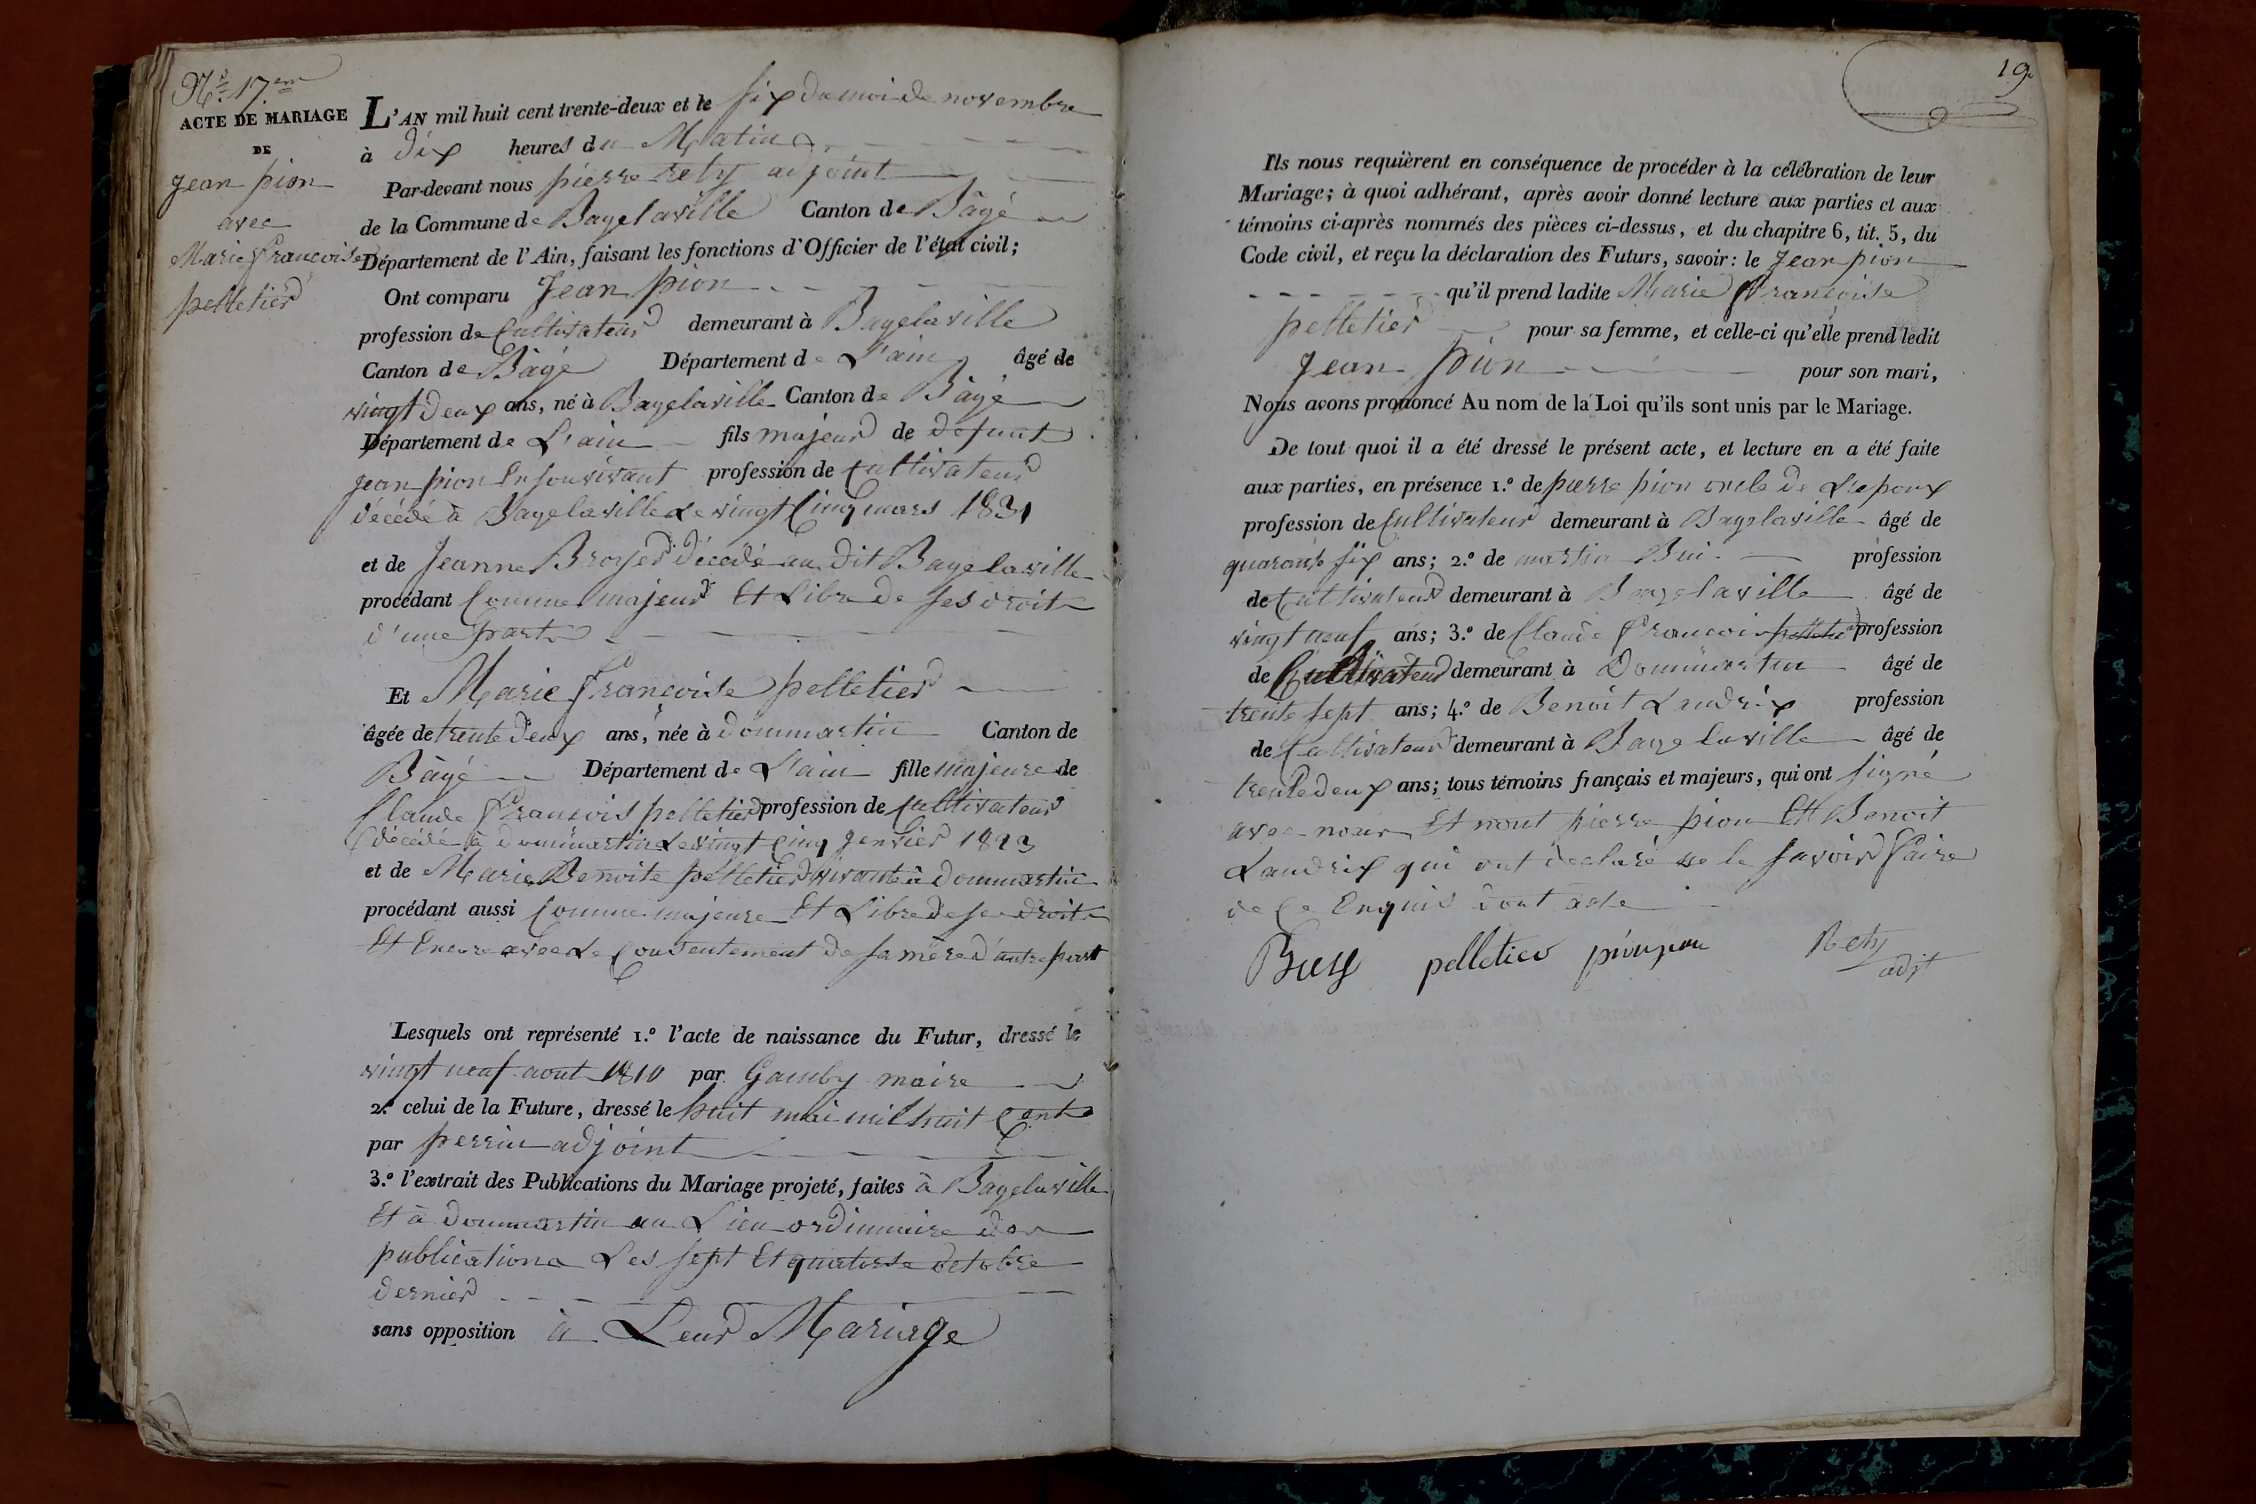 N° 17em
ACTE DE MARIAGE
DE
Jean pion
avec
Marie françoise
pelletier
L'AN mil huit cent trente-deux et le six du moi de novembre
à dix heures du Matin
Par-devant nous pierre rety adjoint
de la Commune de Bagelaville Canton de Bâgé
Département de l'Ain, faisant les fonctions d'Officier de l'état civil;
Ont comparu Jean pion
profession de Cultivateur demeurant à Bagelaville
Canton de Bâgé Département de L'ain âgé de
vingt deux ans, né à Bagelaville Canton de Bâgé
Département de L'ain fils majeur de defunt
jean pion En souvivant profession de Cultivateur
décédé à Bagelaville Le vingt Cinq mars 1831
et de Jeanne Broyer décédé au dit Bagelaville
procédant Comme majeur Et Libre de ses droits
d'une part
Et Marie françoise pelletier
âgée de trente deux ans, née à dommartin Canton de
Bâgé Département de L'ain fille majeure de
Claude françois pelletier profession de Cultivateur
décédé à dommartin Le vingt Cinq Jenvier 1823
et de Marie Benoite pelletier vivante à dommartin
procédant aussi Comme majeure Et Libre de ses droits
Et Encore avec Le Consentement de sa mère d'autre part
Lesquels ont représenté 1.° l'acte de naissance du Futur, dressé le
vingt neuf aout 1810 par Gamby maire
2.° celui de la Future, dressé le huit mai mil huit Cent
par perrin adjoint
3.° l'extrait des Publications du Mariage projeté, faites à Bagelaville
Et à dommartin au Lieu ordinnaire des
publications Les sept Et quatorse octobre
dernier
sans opposition à Leur Mariage
19
Ils nous requièrent en conséquence de procéder à la célébration de leur
Mariage; à quoi adhérant, après avoir donné lecture aux parties et aux
témoins ci-après nommés des pièces ci-dessus, et du chapitre 6, tit. 5, du
Code civil, et reçu la déclaration des Futurs, savoir: le Jean pion
qu'il prend ladite Marie françoise
pelletier pour sa femme, et celle-ci qu'elle prend ledit
Jean pion pour son mari,
Nous avons prononcé Au nom de la Loi qu'ils sont unis par le Mariage.
De tout quoi il a été dressé le présent acte, et lecture en a été faite
aux parties, en présence 1.° de pierre pion oncle de L'epoux
profession de Cultivateur demeurant à Bagelaville âgé de
quarante six ans; 2.° de martin Bui profession
de Cultivateur demeurant à Bagelaville âgé de
vingt neuf ans; 3.° de Claude françois pelletier profession
de Cultivateur demeurant à Dommartin âgé de
trente sept ans; 4.° de Benoit Landrix profession
de Cultivateur demeurant à Bagelaville âgé de
trente deux ans; tous témoins français et majeurs, qui ont signé
avec nous Et nont pierre pion Et Benoit
Landrix qui ont declaré ne le savoir faire
de Ce Enquis dont acte
Buy pelletier Rety
adjt